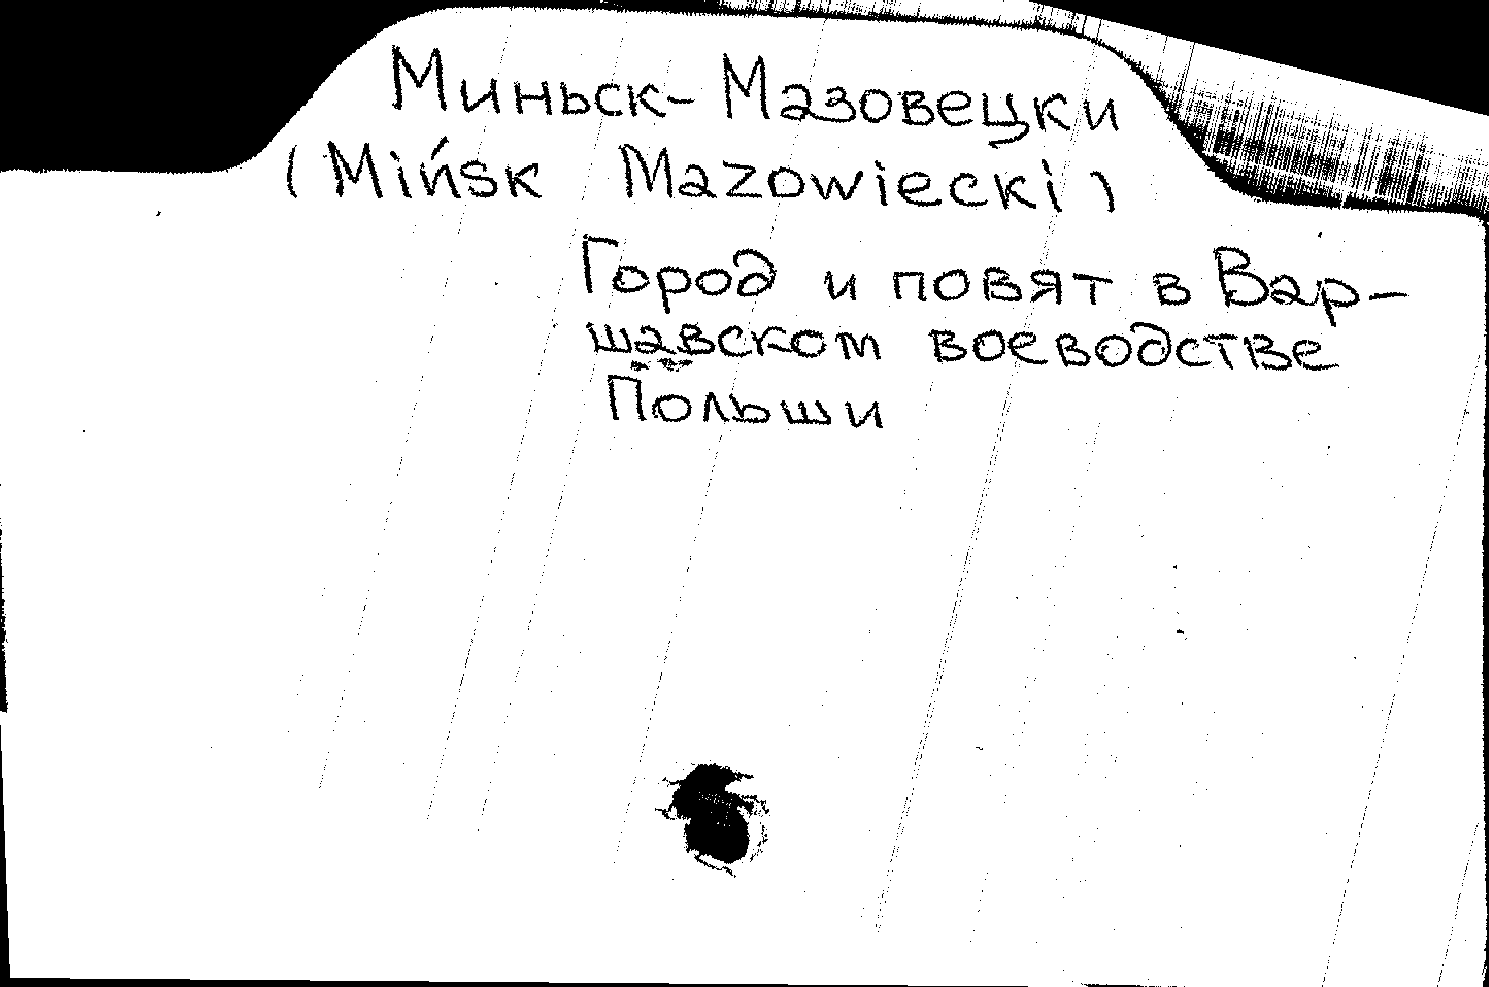 Миньск-Мазовецки
(Mińsk Mazowiecki)
Город и повят в Вар-
шавском воеводстве
Польши